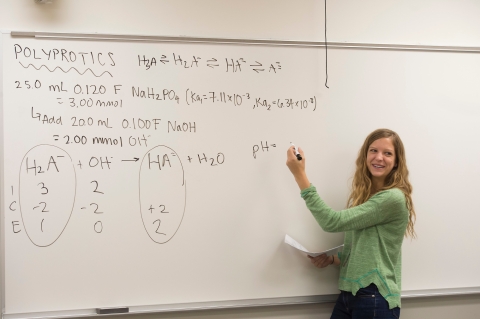 POLYPROTICS
H₃A ⇌ H₂A⁻ ⇌ HA²⁻ ⇌ A³⁻
25.0 mL 0.120 F NaH₂PO₄ (Ka₁=7.11×10⁻³, Ka₂=6.34×10⁻⁸)
= 3.00 mmol
↳ Add 20.0 mL 0.100 F NaOH
= 2.00 mmol OH⁻
H₂A⁻ + OH⁻ → HA²⁻ + H₂O
I 3 2
C -2 -2 +2
E 1 0 2
pH=